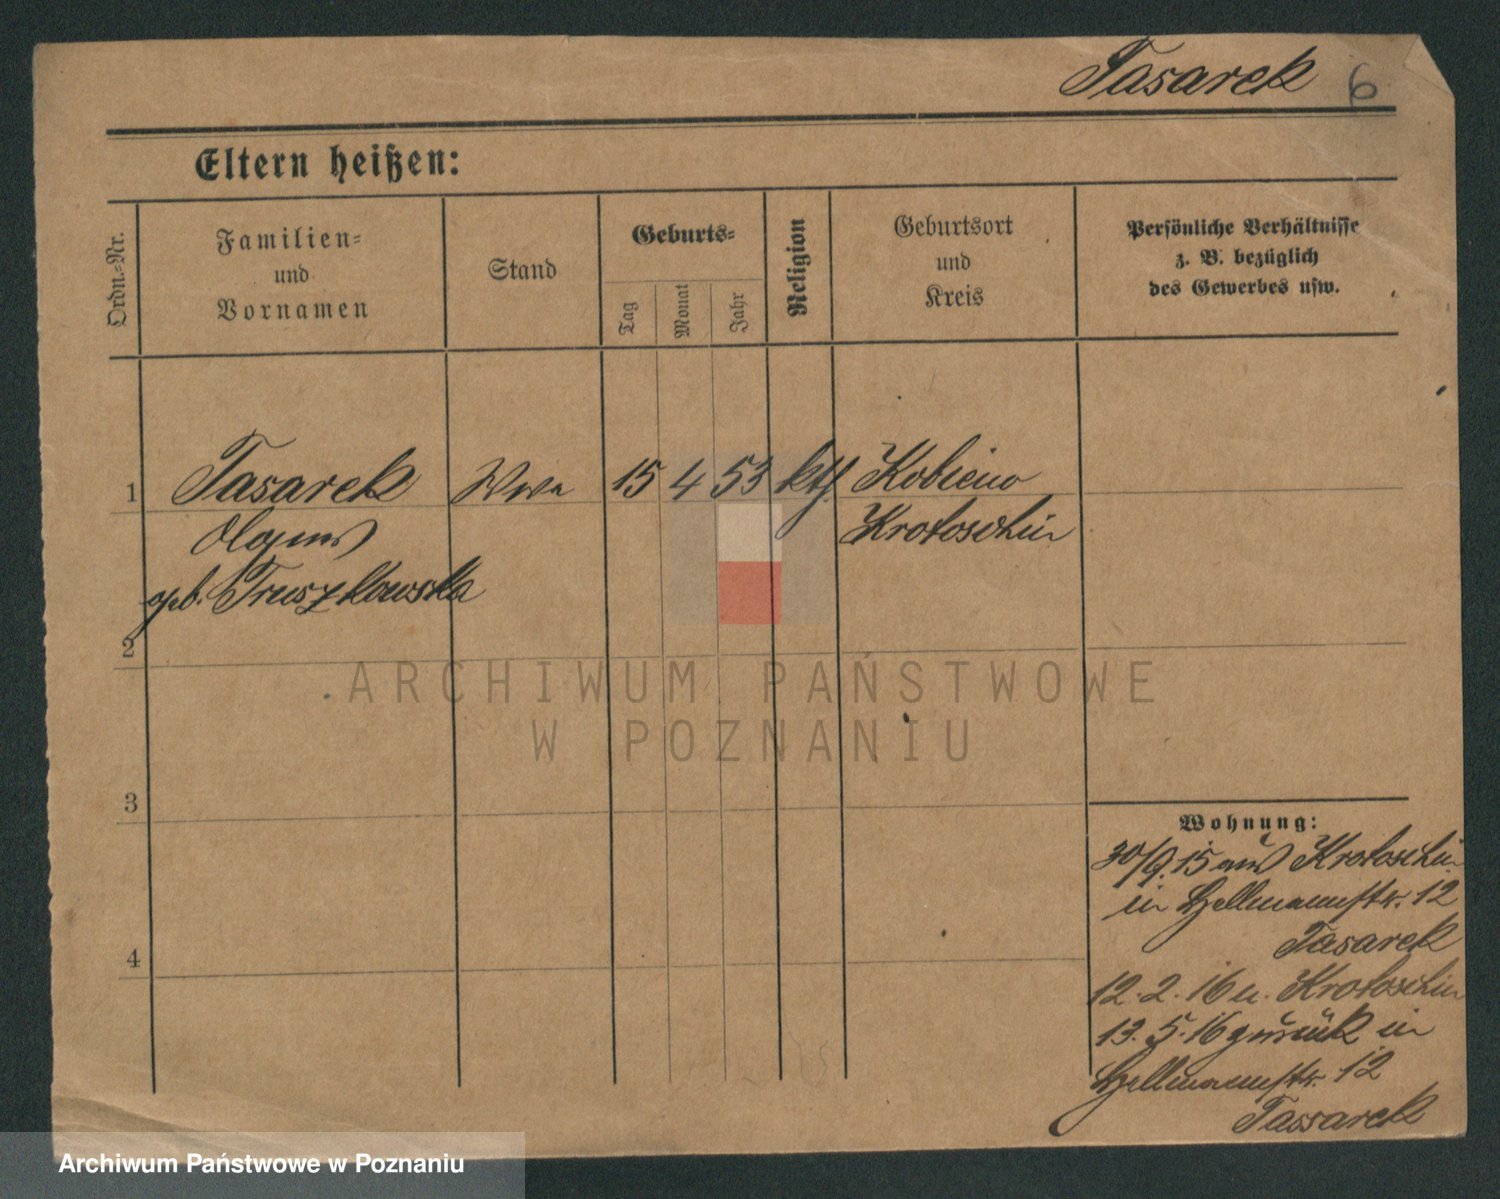 Tasarek 6
Eltern heißen:
Ordn.-Nr.
Familien-
und
Vornamen
Stand
Geburts-
Tag
Monat
Jahr
Religion
Geburtsort
und
Kreis
Persönliche Verhältnisse
z. B. bezüglich
des Gewerbes usw.
1 Tasarek Wwe 15 4 53 kth Kobierno
Krotoschin
geb. Truszkowska
2
ARCHIWUM PAŃSTWOWE
W POZNANIU
3
4
Wohnung:
30/9.15 aus Krotoschin
in Hellmannstr. 12
Tasarek
12.2.16 n. Krotoschin
13.5.16 zurück in
Hellmannstr. 12
Tassarek
Archiwum Państwowe w Poznaniu